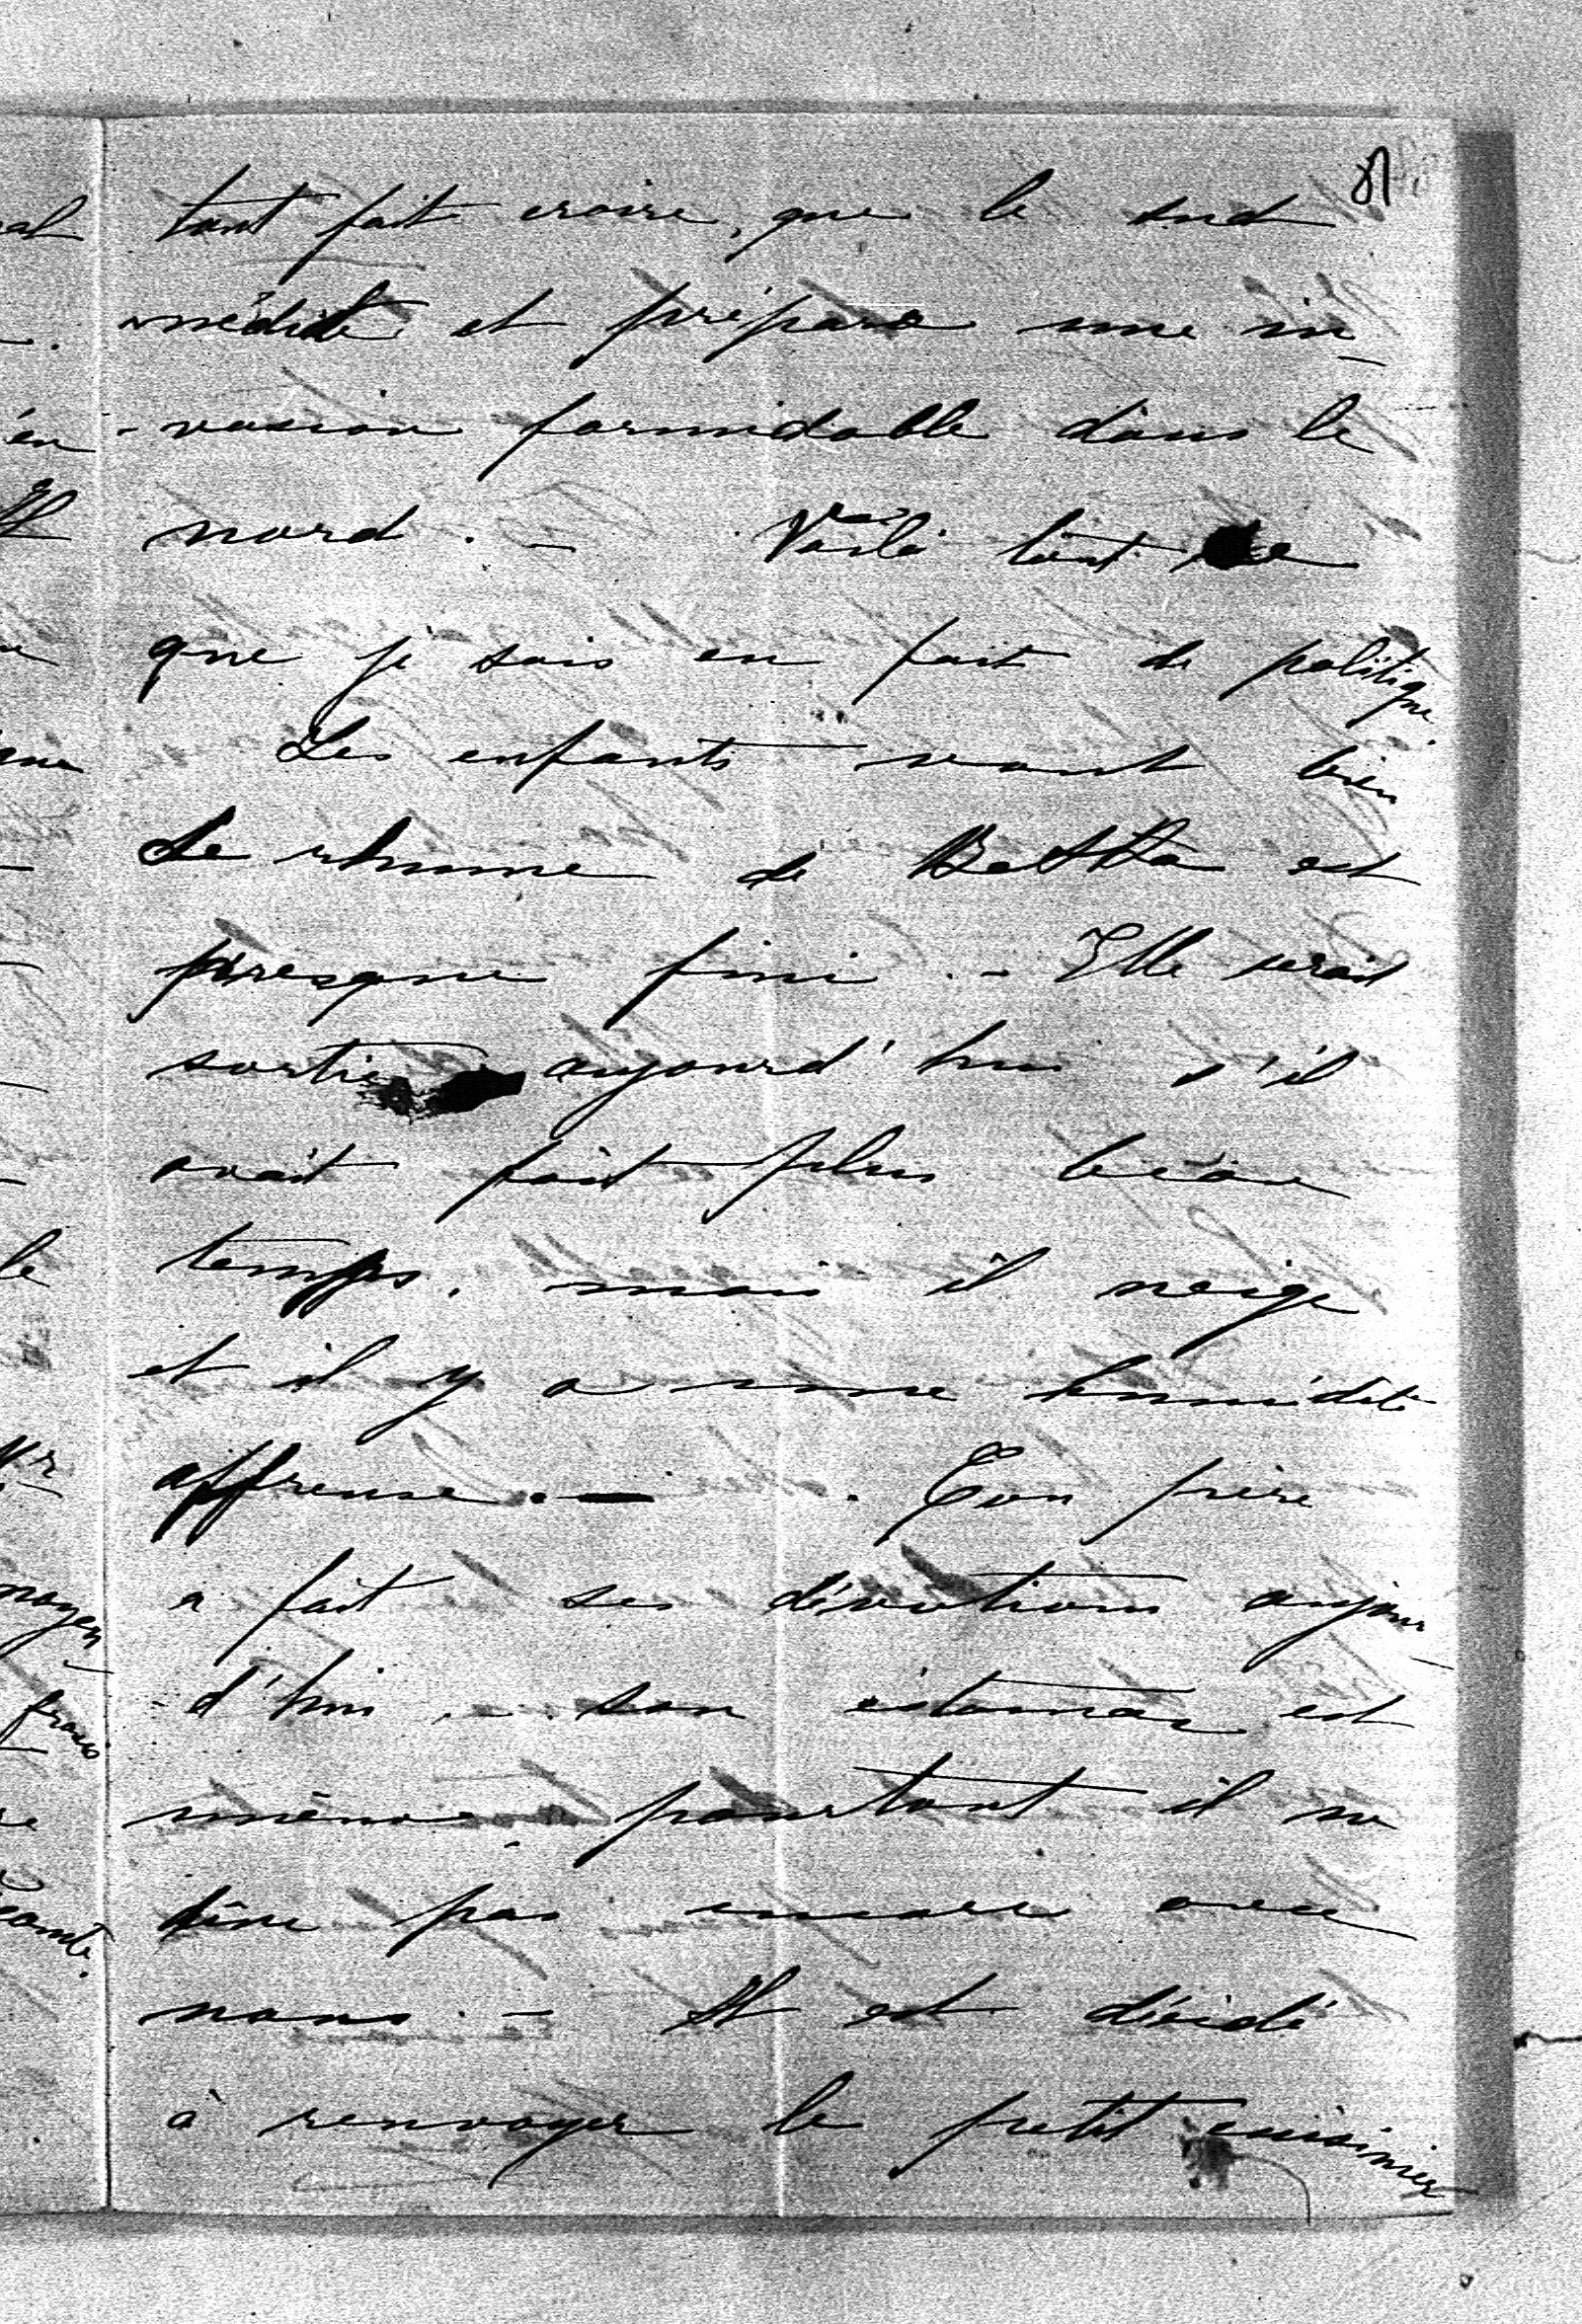 tout fait croire, que le sud
médite et prépare une in
-vasion formidable dans le
nord. - Voilà tout ce
que je sais en fait de politique.
Les enfants vont bien
Le rhume de Bettha est
presque fini. - Elle serait
sortie aujourd'hui s'il
avait fait plus beau
temps, mais il neige
et il y a une humidité
affreuse. — Ton frère
a fait ses dévotions aujour-
-d'hui son estomac est
pourtant il ne
dîne pas encore avec
nous. - Il est décidé
à renvoyer le petit cuisinier